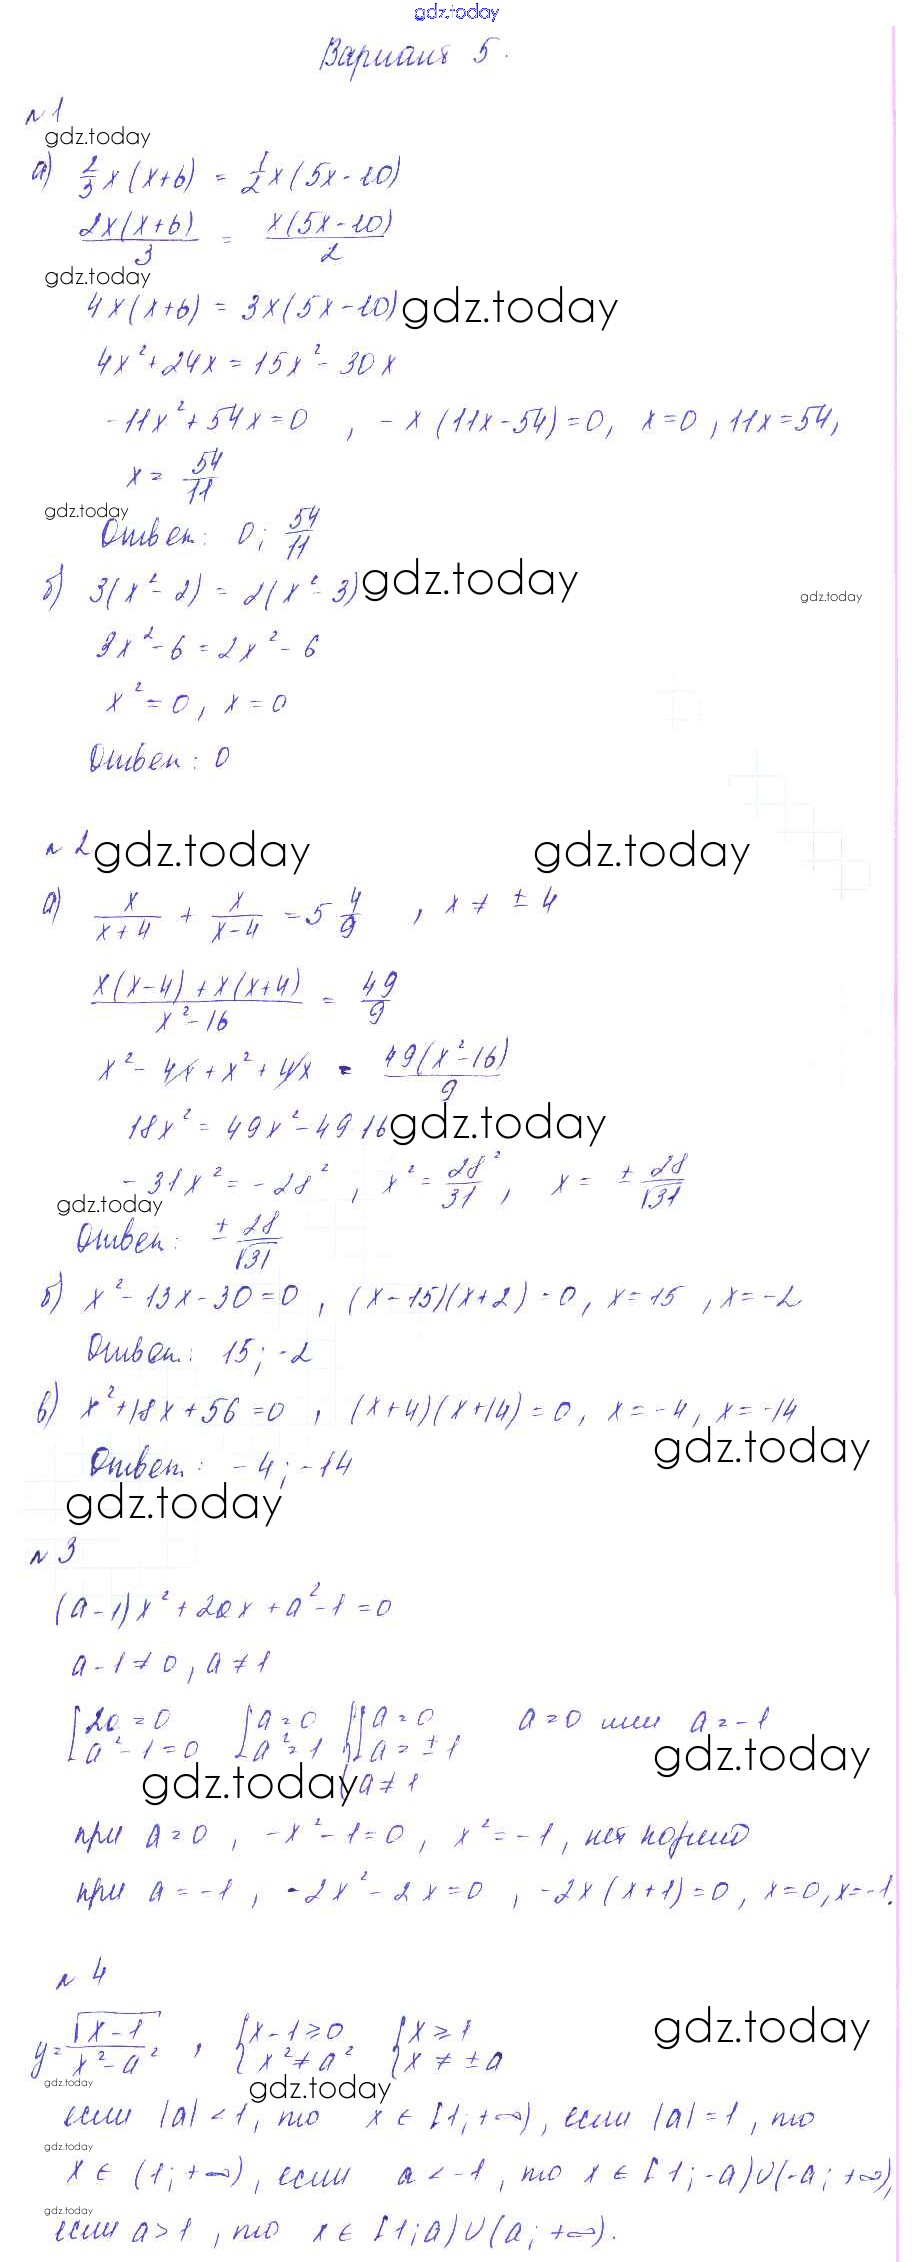 gdz.today
Вариант 5.
№1
gdz.today
а) 2/3 x(x+6) = 1/2 x(5x-10)
2x(x+6)/3 = x(5x-10)/2
gdz.today
4x(x+6) = 3x(5x-10) gdz.today
4x²+24x = 15x²-30x
-11x²+54x=0 , -x(11x-54)=0, x=0, 11x=54,
x = 54/11
gdz.today
Ответ: 0; 54/11
б) 3(x²-2) = 2(x²-3) gdz.today
gdz.today
3x²-6=2x²-6
x²=0, x=0
Ответ: 0
№2 gdz.today gdz.today
а) x/(x+4) + x/(x-4) = 5 4/9 , x ≠ ±4
(x(x-4)+x(x+4))/(x²-16) = 49/9
x²-4x+x²+4x = 49(x²-16)/9
18x² = 49x²-49·16 gdz.today
-31x² = -28² , x² = 28²/31 , x = ± 28/√31
gdz.today
Ответ: ± 28/√31
б) x²-13x-30=0 , (x-15)(x+2)=0, x=15 , x=-2
Ответ: 15; -2
в) x²+18x+56=0 , (x+4)(x+14)=0, x=-4, x=-14
gdz.today
Ответ: -4; -14
gdz.today
№3
(a-1)x²+2ax+a²-1=0
a-1≠0, a≠1
[2a=0 [a=0 {[a=0 a=0 или a=-1
[a²-1=0 [a²=1 {[a=±1 gdz.today
gdz.today {a≠1
при a=0 , -x²-1=0 , x²=-1, нет корней
при a=-1 , -2x²-2x=0 , -2x(x+1)=0, x=0, x=-1.
№4
y= √(x-1)/(x²-a²) , {x-1≥0 {x≥1 gdz.today
{x²≠a² {x≠±a
gdz.today gdz.today
если |a|<1, то x∈[1;+∞), если |a|=1, то
gdz.today
x∈(1;+∞), если a<-1, то x∈[1;-a)∪(-a;+∞),
gdz.today
если a>1 , то x∈[1;a)∪(a;+∞).